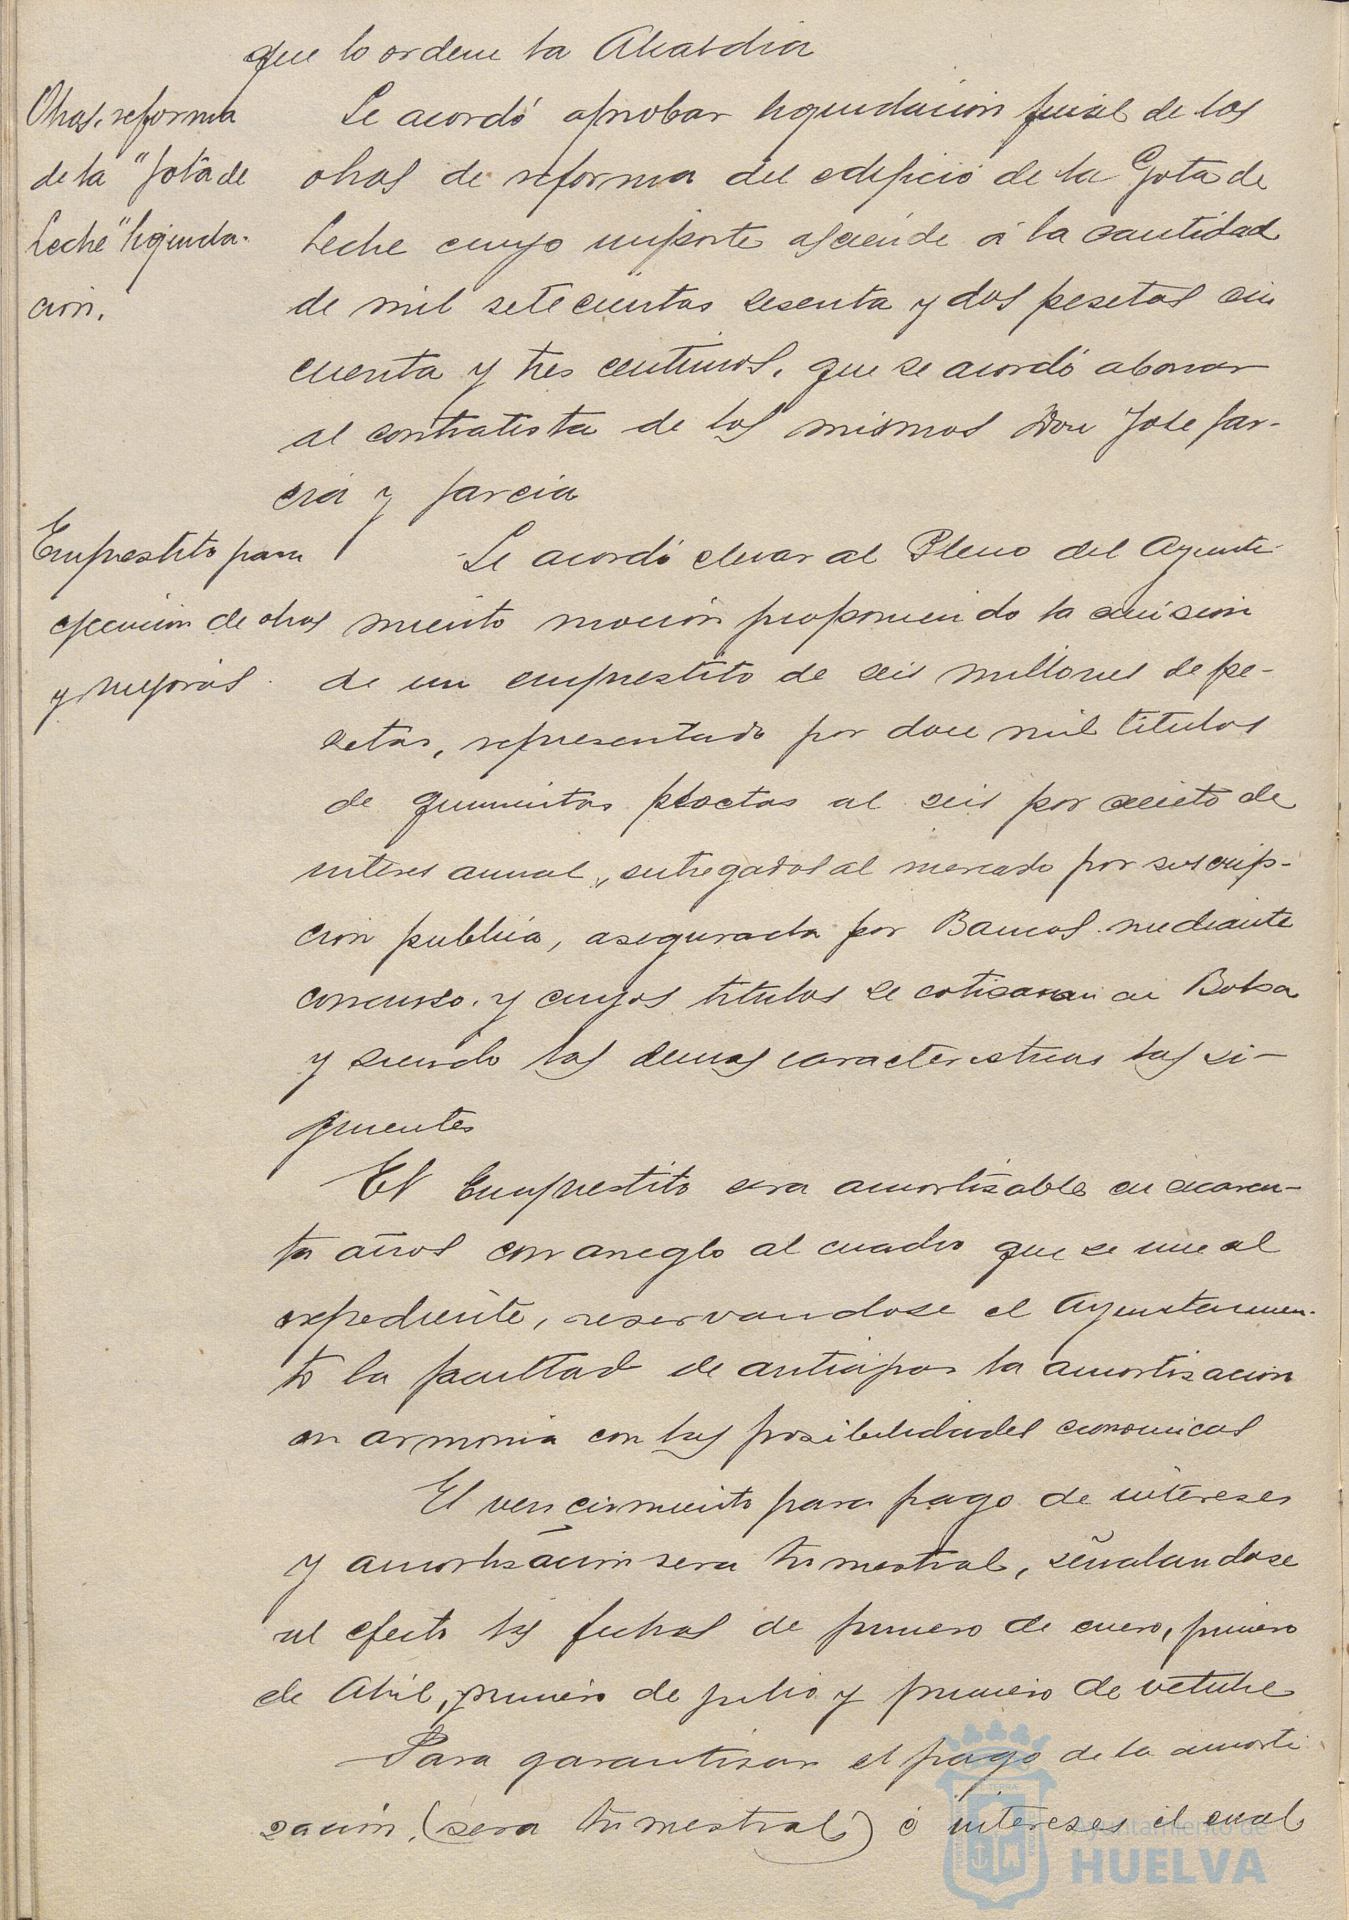 que lo ordene la Alcaldia
Obras reforma
de la "Gota de
Leche" liquida-
ción.
Se acordó aprobar liquidacion final de las
obras de reforma del edificio de la Gota de
Leche cuyo importe asciende á la cantidad
de mil setecientas sesenta y dos pesetas cin
cuenta y tres centimos, que se acordó abonar
al contratista de las mismas Don Jose Gar-
cia y Garcia
Emprestito para
ejecucion de obras
y mejoras
Se acordó elevar al Pleno del Ayunta
miento moción proponiendo la emision
de un emprestito de seis millones de pe-
setas, representado por doce mil titulos
de quinientas pesetas al seis por ciento de
interes anual, entregados al mercado por suscrip-
cion publica, asegurada por Bancos mediante
concurso y cuyos titulos se cotizaran en Bolsa
y siendo las demas caracteristicas las si-
guientes
El Emprestito sera amortizable en cuaren-
ta años con arreglo al cuadro que se une al
expediente, reservandose el Ayuntamien-
to la facultad de anticipar la amortizacion
en armonia con las posibilidades economicas
El vencimiento para pago de intereses
y amortización sera trimestral, señalandose
al efecto las fechas de primero de enero, primero
de Abril, primero de julio y primero de octubre
Para garantizar el pago de la amorti
zación, (sera trimestral) é intereses el cual
Ayuntamiento de
HUELVA